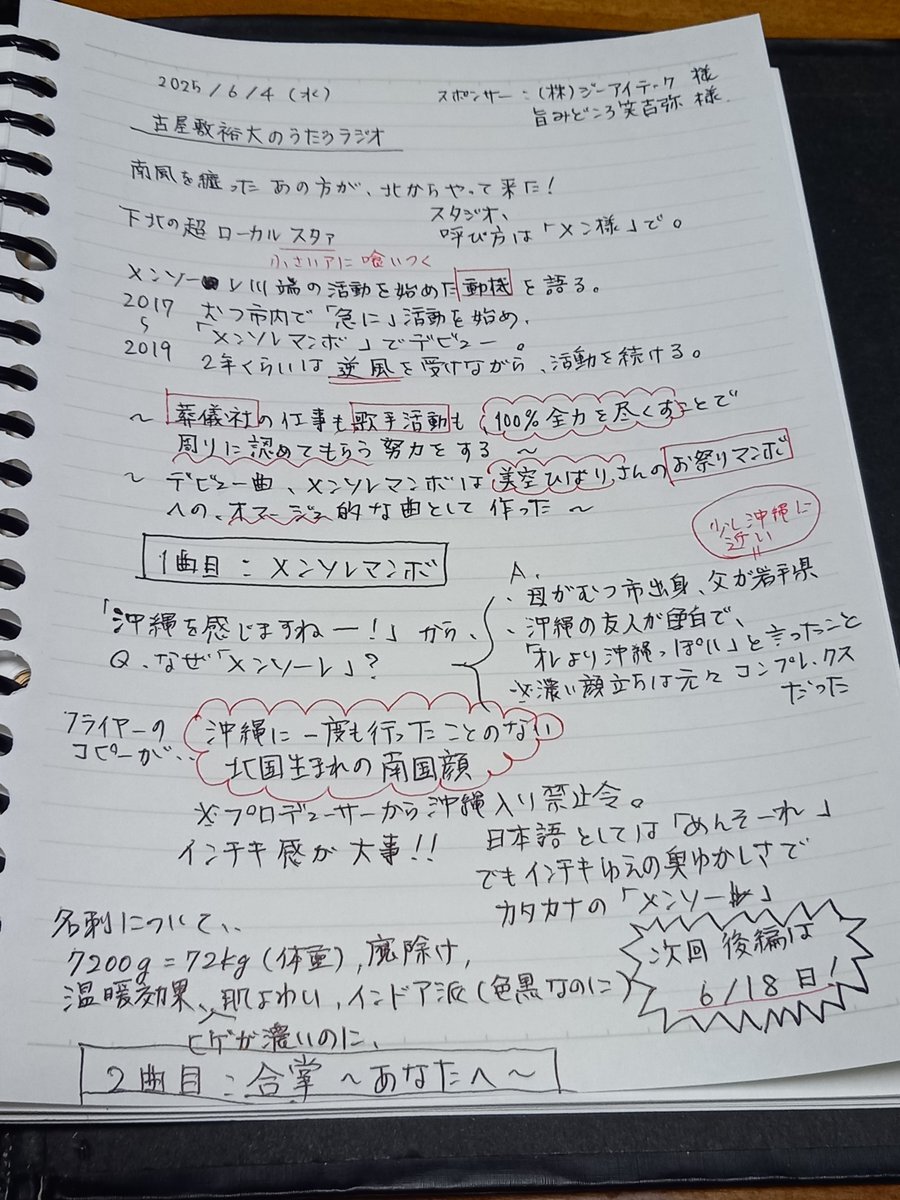 2025/6/4(水)
スポンサー:(株)ジーアイテック 様
旨みどころ笑吉弥 様.
古屋敷裕大のうたうラジオ
南風を纏った あの方が、北からやって来た!
下北の超 ローカル スタァ
小さいァに 喰いつく
スタジオ、
呼び方は「メン様」で。
メンソーレ川端の活動を始めた動機を語る。
2017
〜
2019
むつ市内で「急に」活動を始め、
「メンソレマンボ」でデビュー。
2年くらいは 逆風を受けながら、活動を続ける。
〜 葬儀社の仕事も歌手活動も 100%全力を尽くすことで
周りに認めてもらう努力をする 〜
〜 デビュー曲、メンソレマンボは美空ひばりさんのお祭りマンボ
への、オマージュ的な曲として 作った 〜
少し沖縄に
近い
1曲目:メンソレマンボ
「沖縄を感じますねー!」から、
Q. なぜ「メンソーレ」?
A.
・母がむつ市出身、父が岩手県
・沖縄の友人が色白で、
「オレより沖縄っぽい」と言ったこと
※濃い顔立ちは元々 コンプレックス
だった
フライヤーの
コピーが、、
沖縄に一度も行ったことのない
北国生まれの南国顔
※プロデューサーから沖縄入り禁止令。
インチキ感が 大事!!
日本語としては「めんそーれ」
でもインチキゆえの奥ゆかしさで
カタカナの「メンソーレ」
名刺について、、
7200g=72kg(体重), 魔除け,
温暖効果、肌よわい, インドア派(色黒なのに)
ヒゲが濃いのに、
次回 後編は
6/18日!
2曲目:合掌〜あなたへ〜